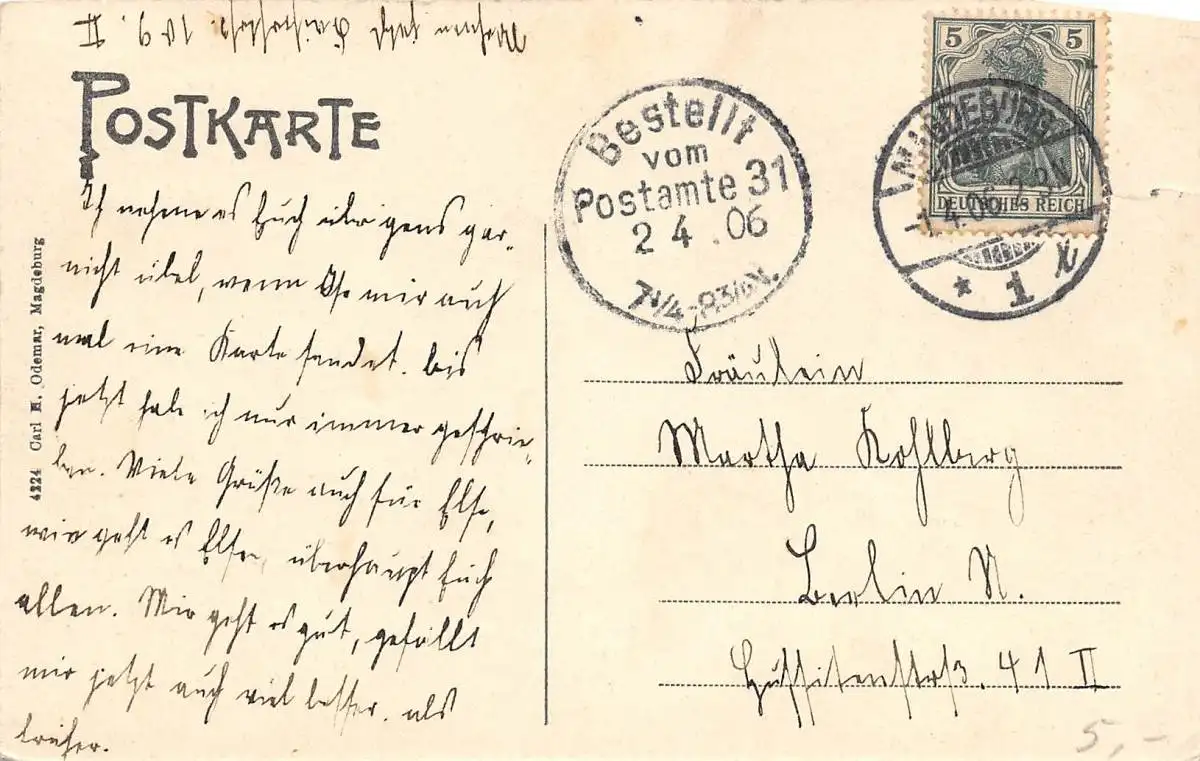 Wohne jetzt 10 9 II
POSTKARTE
Ich nehme es Euch übrigens gar-
nicht übel, wenn Ihr mir auch
mal eine Karte sendet. bis
jetzt habe ich nur immer geschrie-
ben. Viele Grüße auch für Else,
wie geht es Elsen, überhaupt Euch
allen. Mir geht es gut, gefällt
mir jetzt auch viel besser. als
früher.
4224 Carl H. Odemar, Magdeburg
Bestellt
vom
Postamte 31
2 4 . 06
7 1/4-8 3/4 V.
5 5
DEUTSCHES REICH
MAGDEBURG
1.4.06 N
* 1 n
Fräulein
Martha Kohlberg
Berlin N.
Hussitenstrß. 41 II
5,-